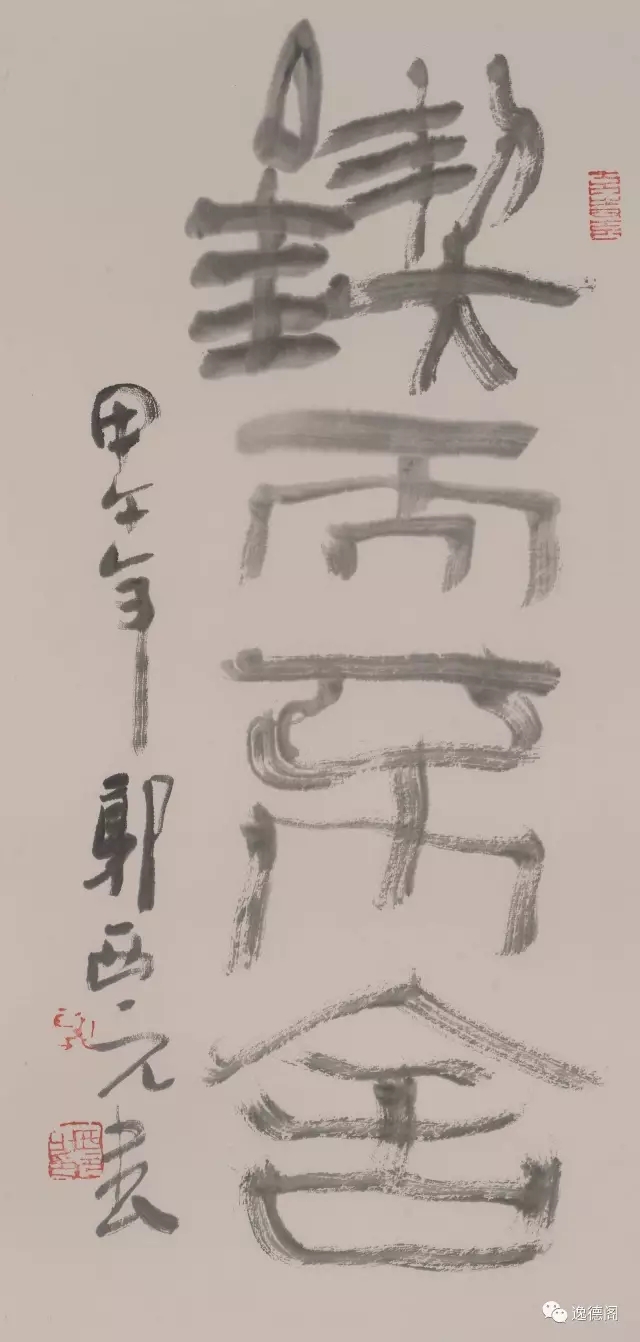 锲而不舍
甲午年 郭西元书
逸德阁